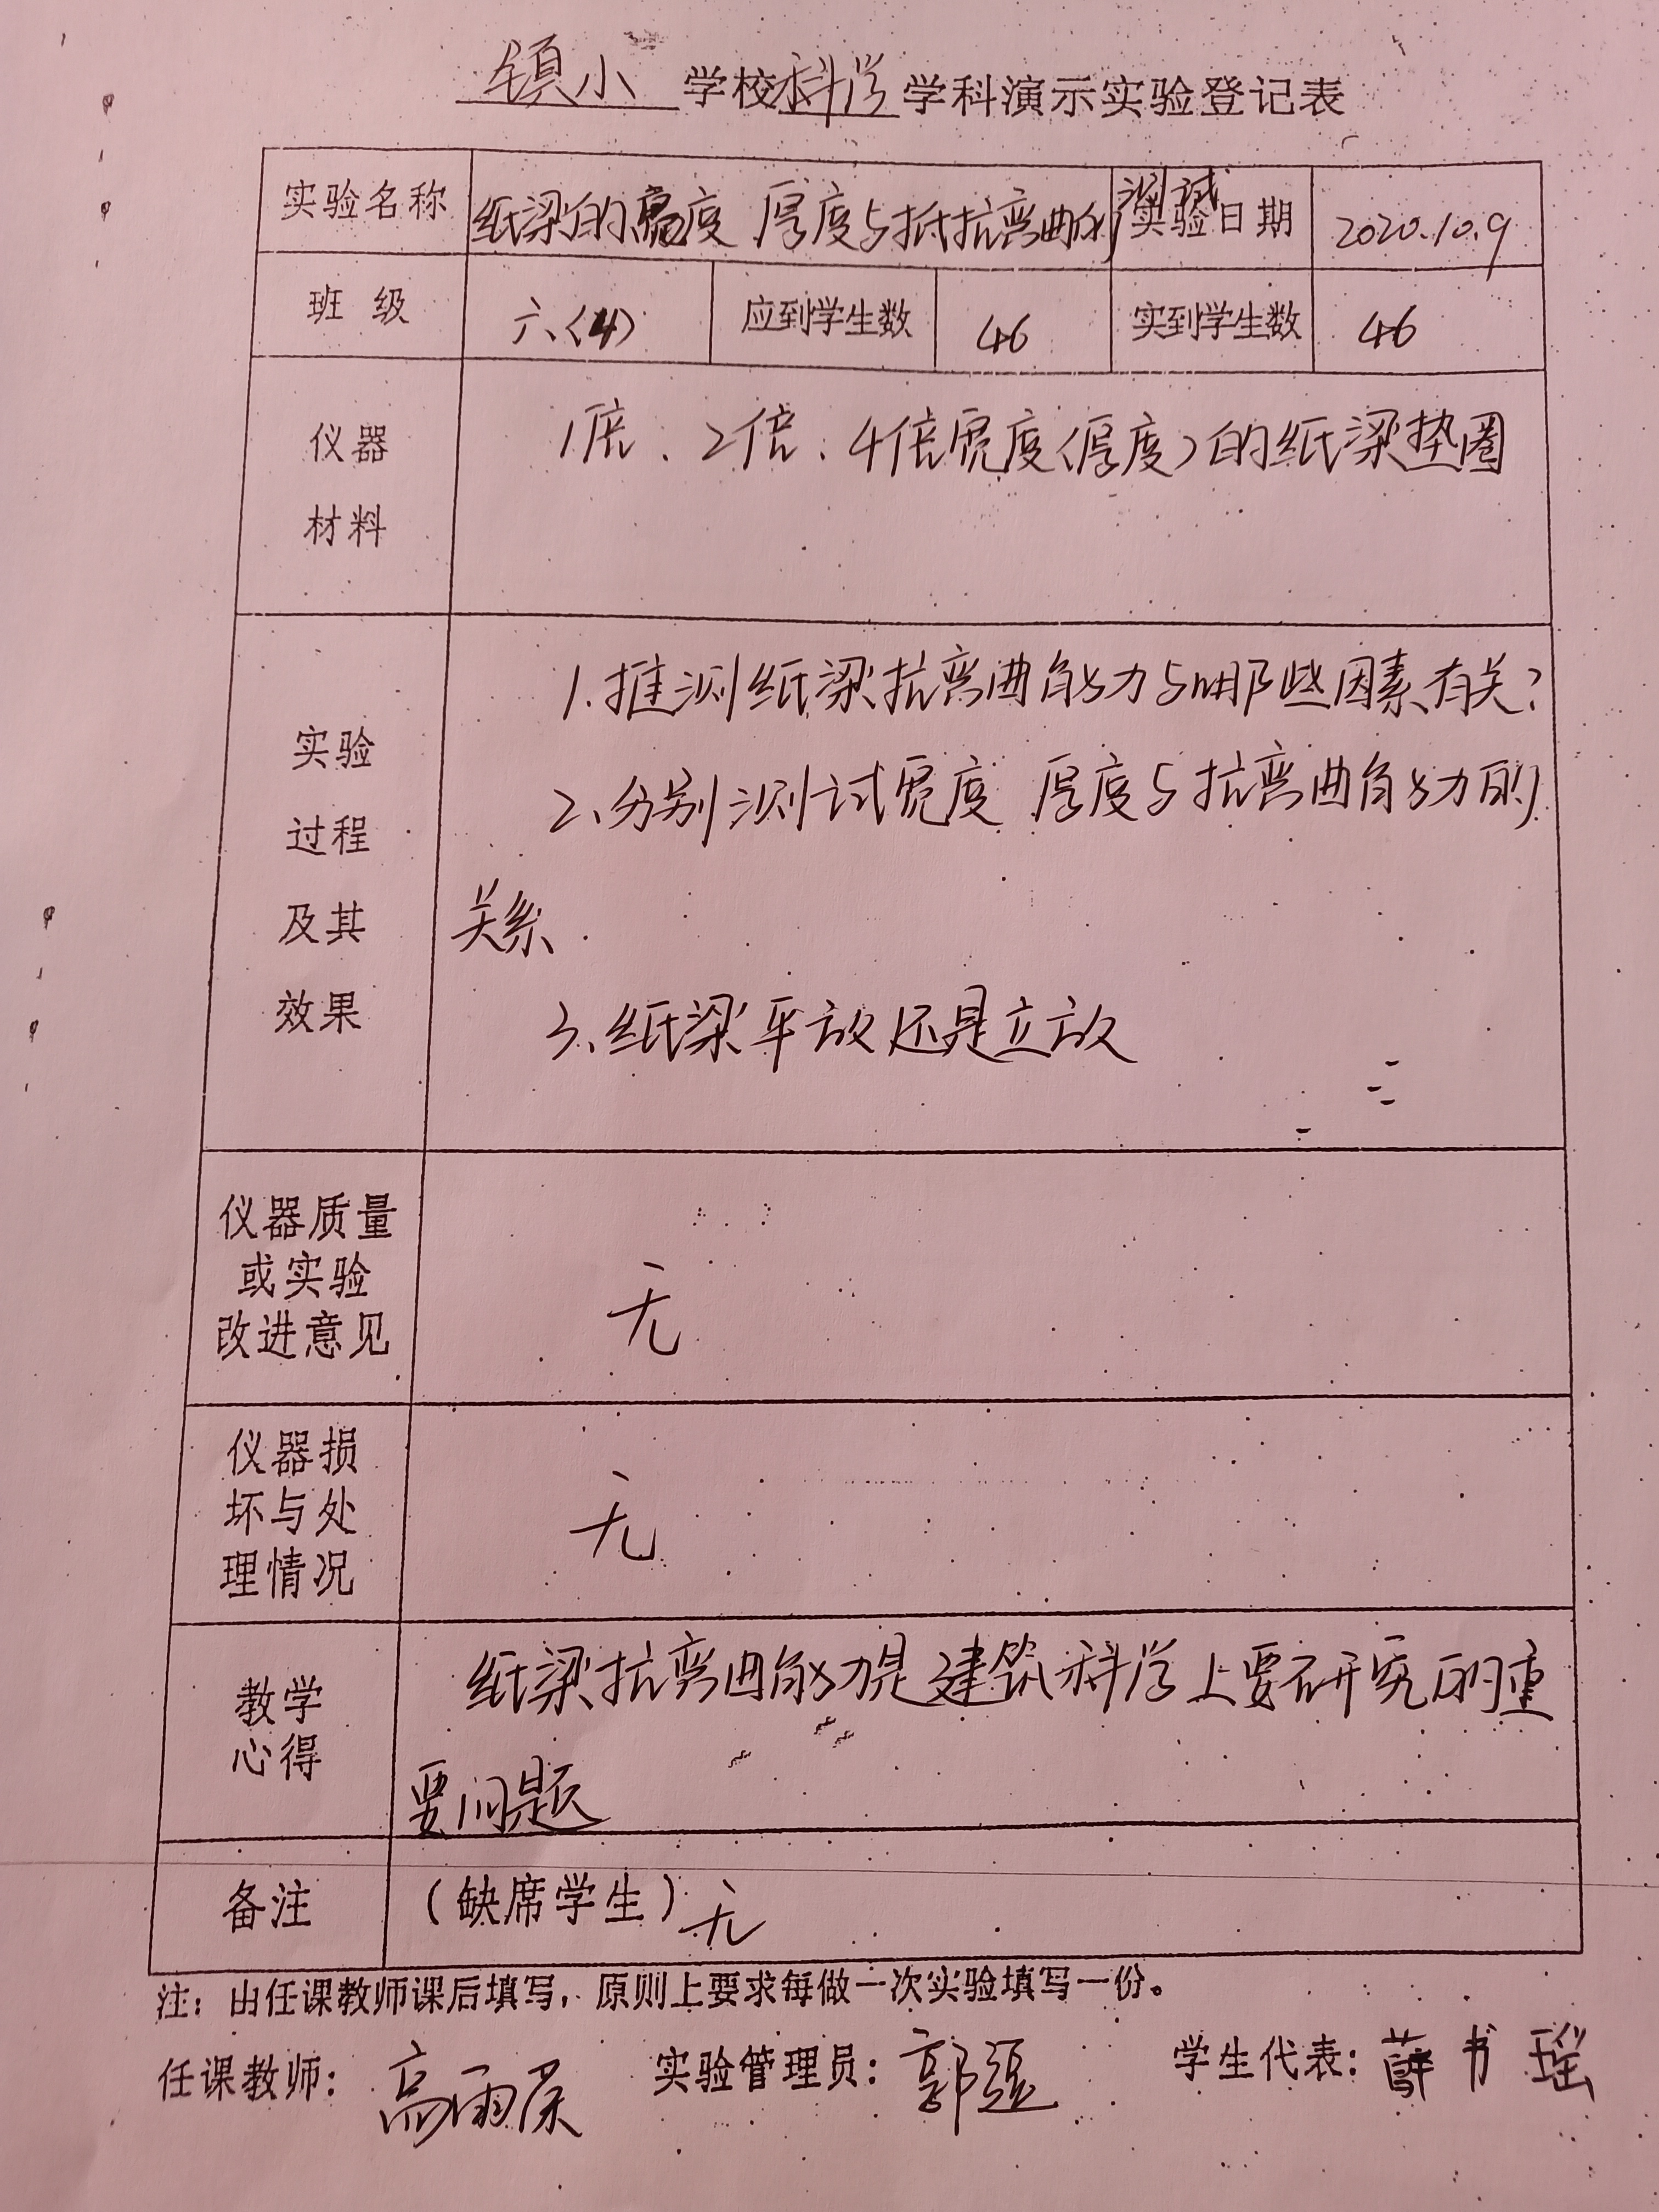 镇小 学校 科学 学科演示实验登记表
实验名称 纸梁的宽度 厚度与抵抗弯曲的测试 实验日期 2020.10.9
班 级 六(4) 应到学生数 46 实到学生数 46
仪器 1倍、2倍、4倍宽度(厚度)的纸梁垫圈
材料
1.推测纸梁抗弯曲能力与哪些因素有关?
实验
2、分别测试宽度 厚度与抗弯曲能力的
过程
及其 关系.
效果 3、纸梁平放还是立放
仪器质量
或实验 无
改进意见
仪器损
坏与处 无
理情况
教学 纸梁抗弯曲能力是建筑科学上要研究的重
心得 要问题
备注 (缺席学生) 无
注:由任课教师课后填写,原则上要求每做一次实验填写一份。
任课教师: 高雨 实验管理员: 郭强 学生代表: 薛书瑶